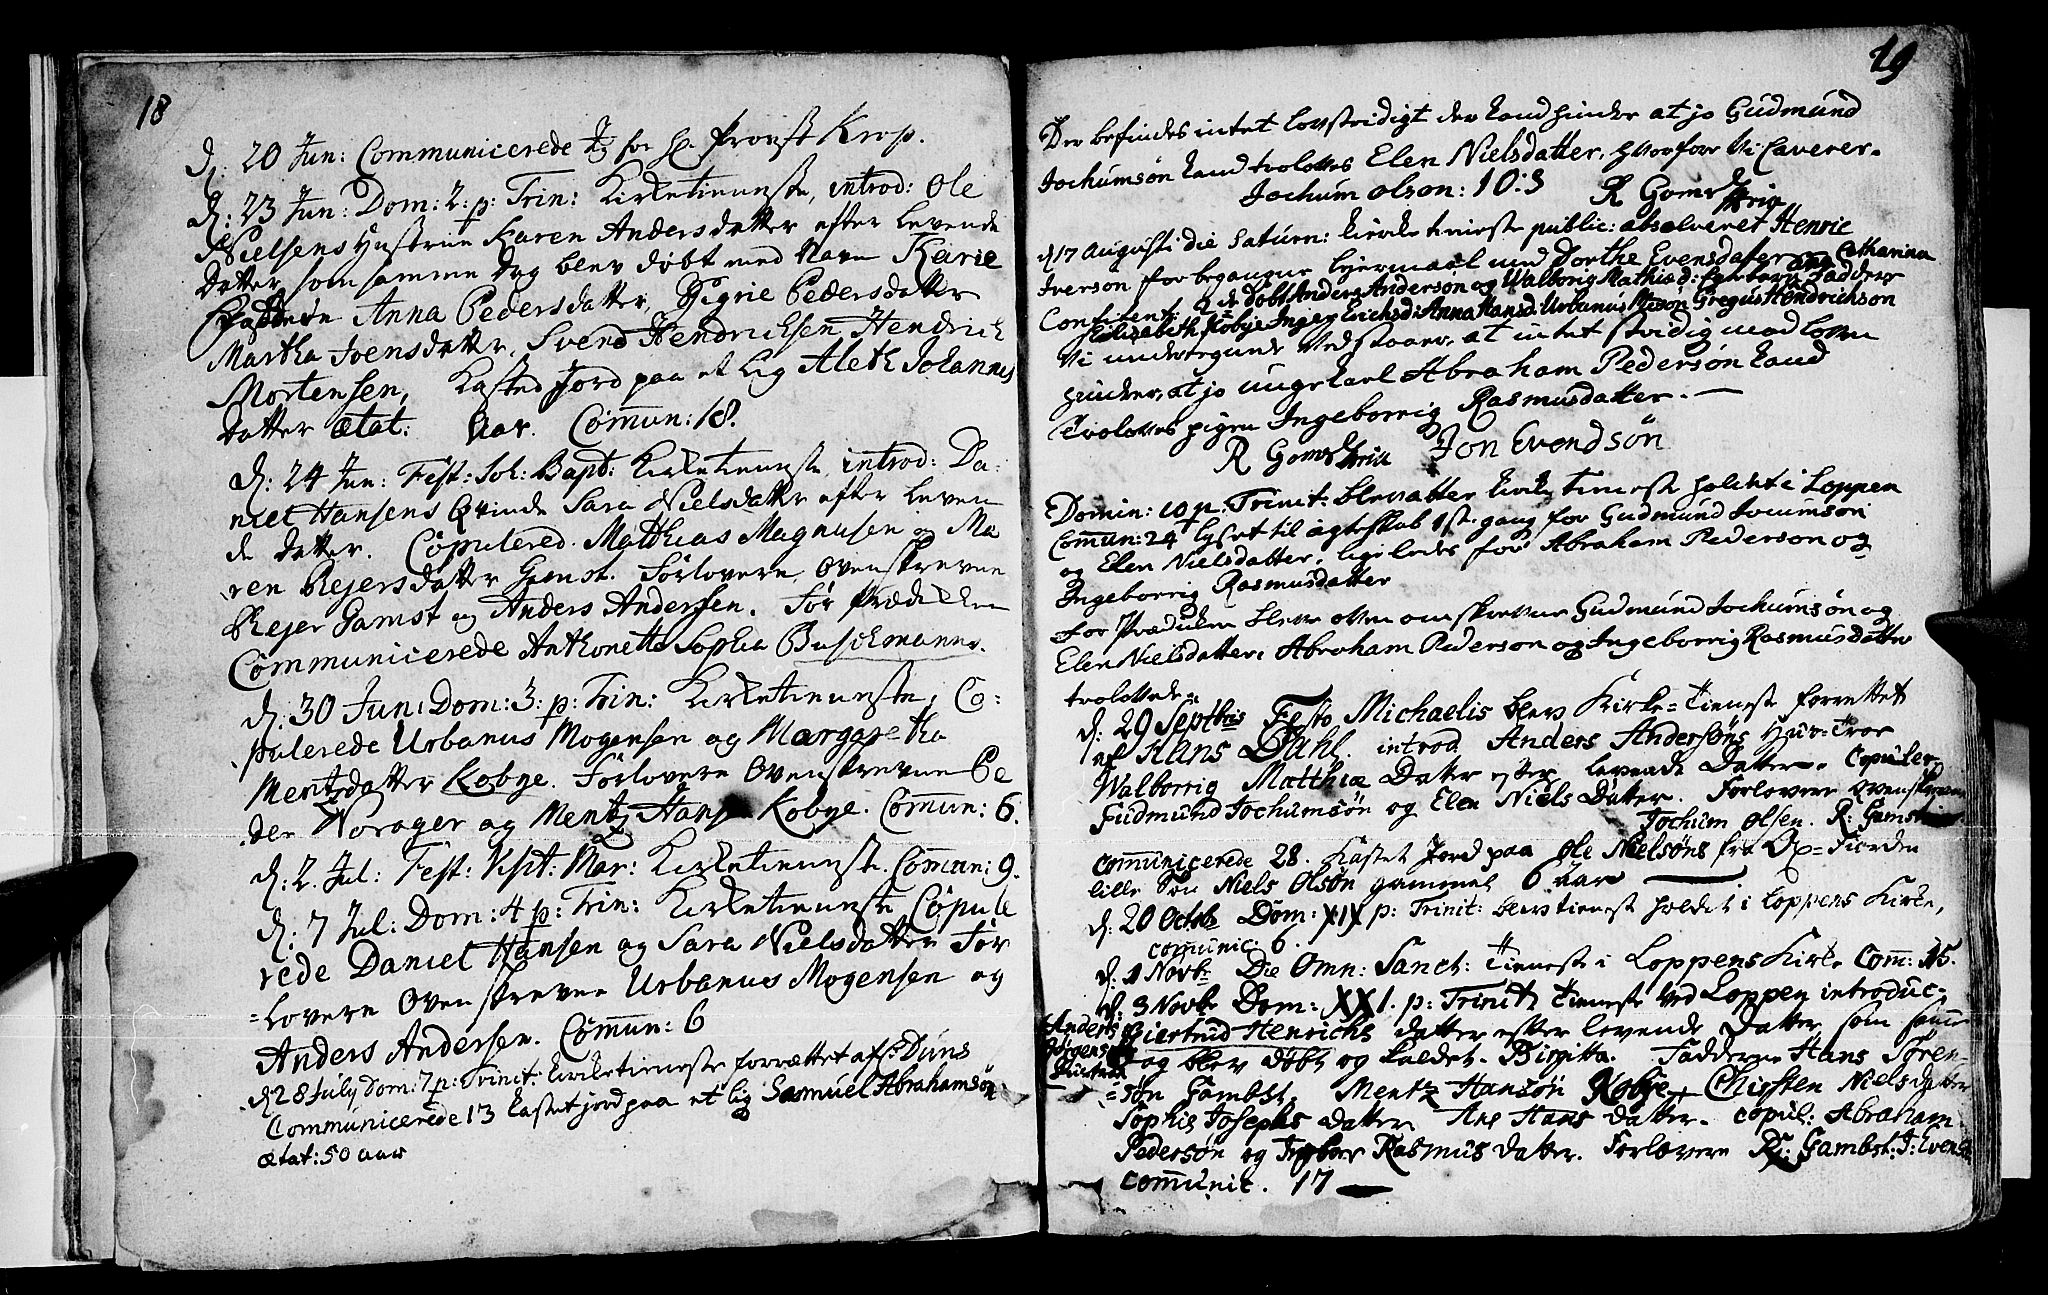 18
d: 20 Jun: Communicerede Jeg for Hr. Provst Krop.
d: 23 Jun: Dom: 2. p: Trin: Kirketienneste, introd: Ole
Nielsens Hustrue Karen Andersdatter efter levende
datter som samme dag blev døbt med Navn Karie
Faddrene Anna Pedersdatter, Sigrie Pedersdatter
Martha Joensdatter, Svend Hendrichsen Hendrich
Mortensen, Kasted Jord paa et lig Aleth Johannes
datter ætat: Aar. Comun: 18.
d: 24 Jun: Fest: Joh: Bapt: Kirketienneste, introd: Da-
niel Hansens Qvinde Sara Nielsdatter efter leven
de datter. Copulered Matthias Magnusen og Ma
ren Rejersdatter Gamst. Forlovere, Ovenskrevne
Rejer Gamst og Anders Andersen. Før Prædikken
Communicerede Anthonetta Sophia Buschmanns.
d: 30 Jun: Dom: 3: p: Trin: Kirketienneste, Co-
pulerede Urbanus Mogensen og Margaretha
Mentzdatter Kobye. Forlovere Ovenskrevne Pe
der Norager og Mentz Hansen Kobye. Comun: 6.
d: 2. Jul: Fest: Visit: Mar: Kirketienneste. Comun: 9.
d: 7 Jul: Dom: 4 p: Trin: Kirketienneste Copule
rede Daniel Hansen og Sara Nielsdatter For
=lovere Ovenskrevne Urbanus Mogensen og
Anders Andersen. Comun: 6
d 28 July Dom: 7 p: Trinit: kirketieneste forrættet af Hr: Duns
Communicerede 13 kastet jord paa et lig Samuel Abrahamsøn
ætat: 50 aar
19
Der befindes intet lovstridigt der kand hindre at jo Gudmund
Jochumsøn kand troloves Elen Nielsdatter, hvorfore vi Caverer.
Jochum olson: 10:3 R Gomst
d 17 Augusti die Saturn: kirke tieneste public: absolveret Henric
Iverson for begangne leyermaal med Dorthe Evensdatter Cathanina
Confitent: 9 dbt Anders Anderson og Walborig Mathiæ d: Faddere
Elisabeth Kobye Inger Erichsd: Anna Hansd: Urbanus Gregus Hendrichson
Vi undertegnede vedstaaer, at intet stridig mod loven
hindrer, at jo unge karl Abraham Pedersøn kand
Troloves pigen Ingeborrig Rasmusdatter.
R Gomst Jon Evendsøn
Domin: 10 p. Trinit: blev atter kirke tieneste holdet i Loppen
Comun: 24 lyset til ægteskab 1ste gang for Gudmund Jocumson
og Elen Nielsdatter, ligeledes for Abraham Pederson og
Ingeborrig Rasmusdatter
for Prædicken bleve oven omskrevne Gudmund Jochumsøn og
Elen Nielsdatter, Abraham Pederson og Ingeborrig Rasmusdatter
trolovede.
d: 29 Septbris Festo Michaelis blev Kirke=Tieneste forrettet
af Hans Dahl. introd Anders Andersøns Hus-Troe
Walborrig Matthiæ Datter efter levende Datter. Copuler-
Gudmund Jochumsøn og Elen Niels Datter. Forlovere Ovenskrevne
Jochum Olsen. R: Gamst
Communicerede 28. Kastet Jord paa Ole Nielsøns fra Ox-Fiorden
lille Søn Niels Olsøn gammel 6 Aar
d: 20 Octob Dom: XIX p: Trinit: blev tienest holdet i Loppens Kirke,
communic: 6.
d: 1 Novbr Die Omn: Sanct: Tieneste i Loppens Kirke Com: 15.
d: 3 Novbr Dom: XXI. p: Trinit Tieneste ved Loppen introduc-
Anders
Jørgens
Hustrue
Giertrud Henrichs datter efter levende Datter, som samme
dag blev døbt og kaldet. Birgitta. Fadderne Hans Søren-
=søn Gambst, Mentz Hansøn Kobye, Chirsten Niels Datter
Sophie Josephs datter Ane Hans Datter. Copul: Abraham
Pedersøn og Ingbor Rasmus datter. Forlovere R: Gambst: J: Evens
communic. 17